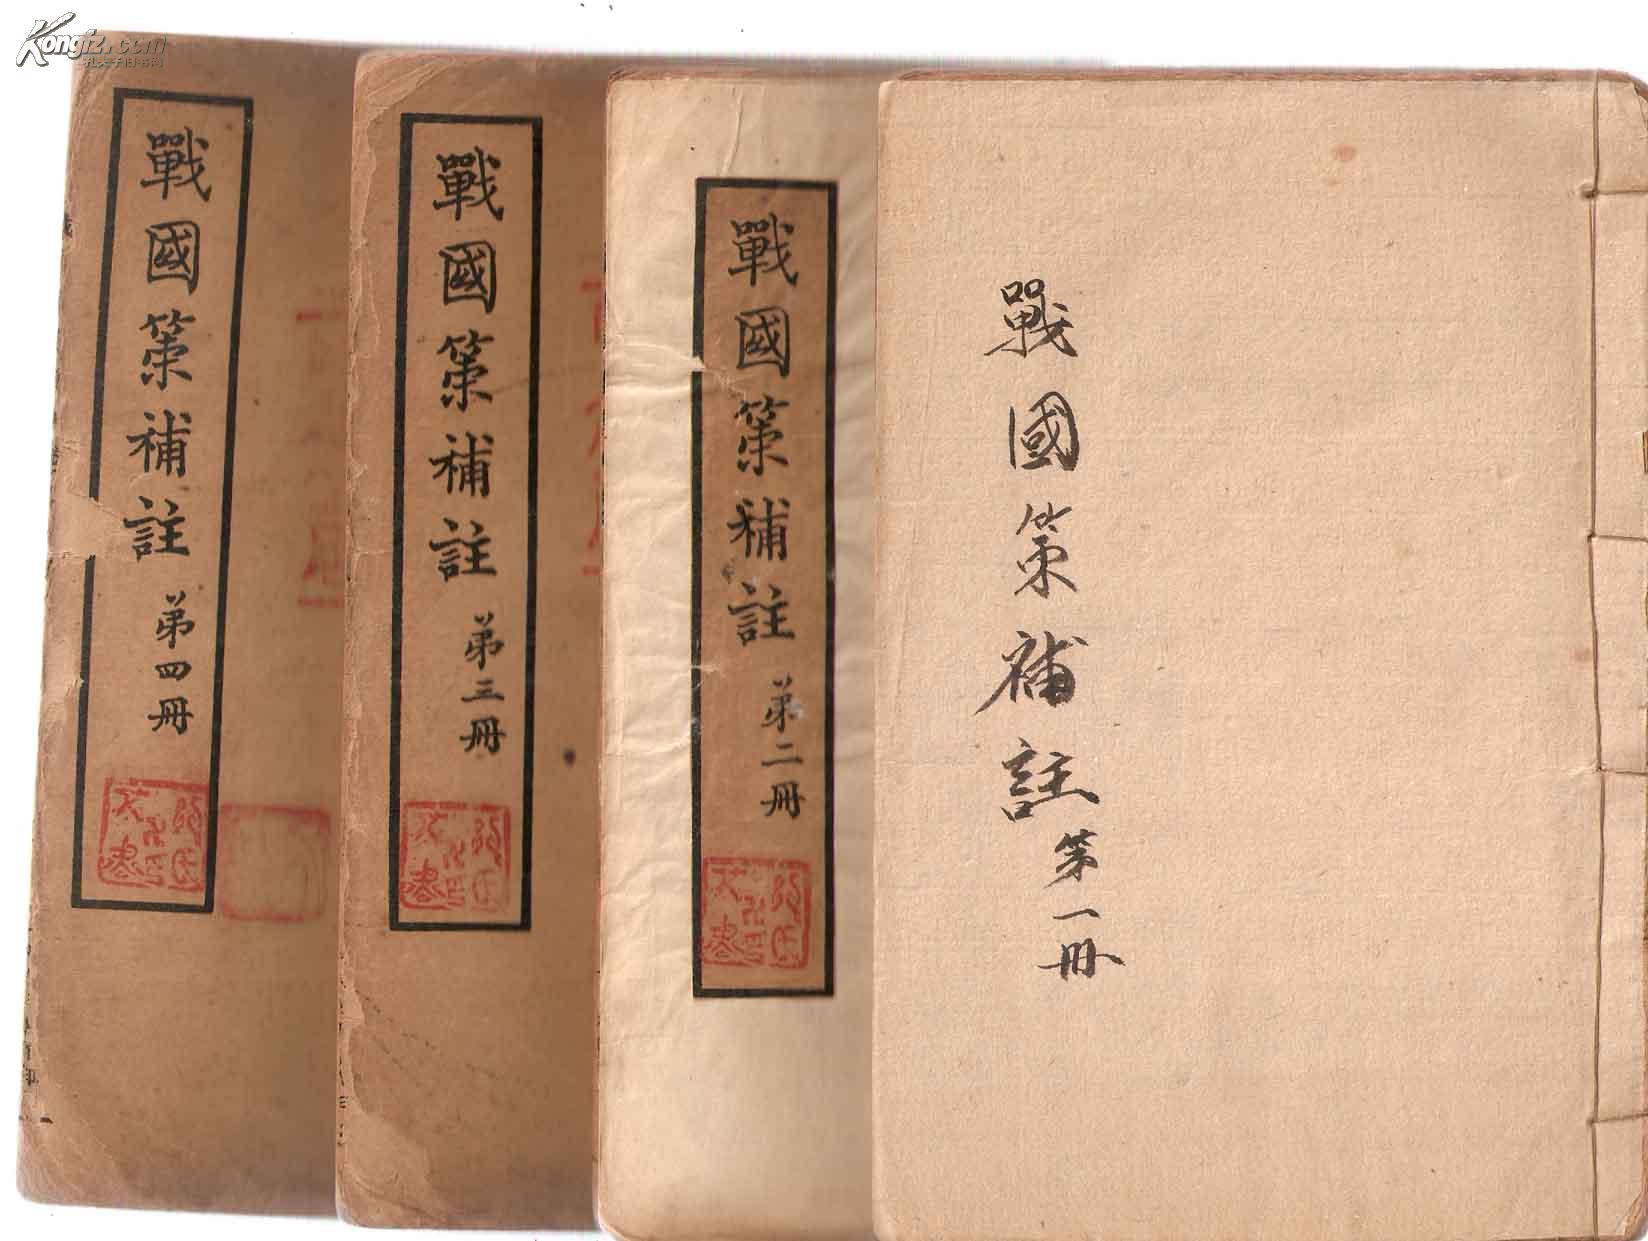 Kongfz.com
孔夫子旧书网
戰國策補註 第一冊
戰國策補註 第二冊
戰國策補註 第三冊
戰國策補註 第四冊